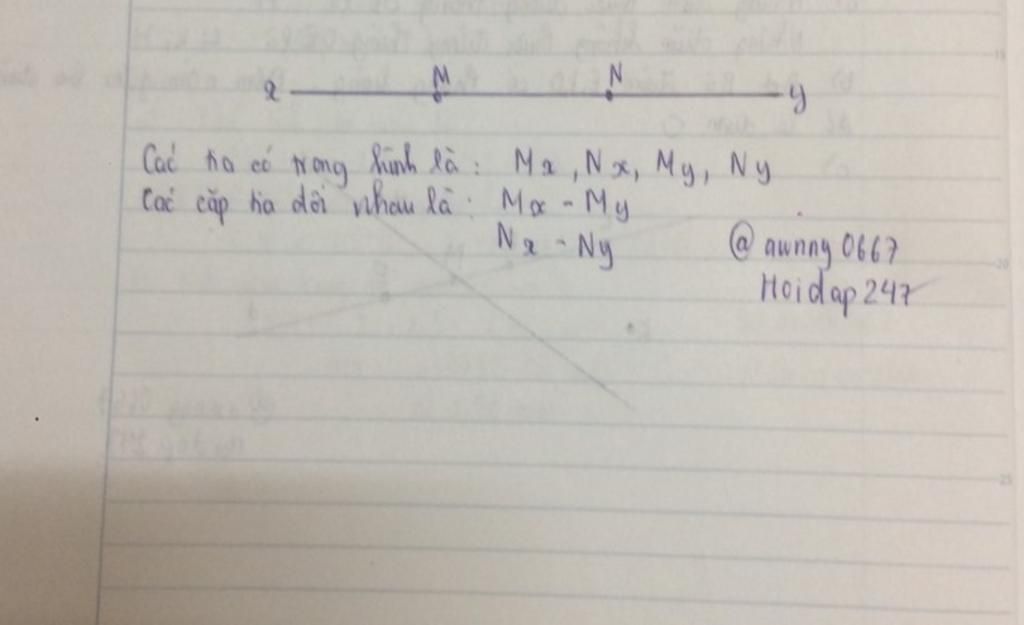 M N
x y
Các tia có trong hình là: Mx, Nx, My, Ny
Các cặp tia đối nhau là: Mx - My
Nx - Ny
@ awnny 0667
Hoidap 247